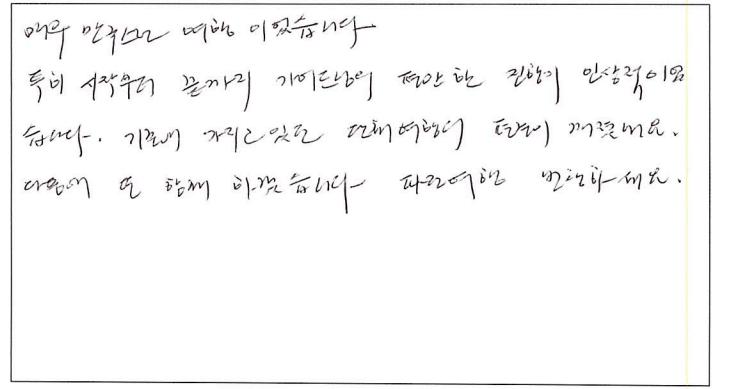 매우 만족스런 여행 이었습니다
특히 시작부터 끝까지 가이드님의 편안한 진행이 인상적이었
습니다. 기존에 가지고 있던 단체여행의 편견이 깨졌네요.
다음에 또 함께 하겠습니다 파란여행 번창하세요.